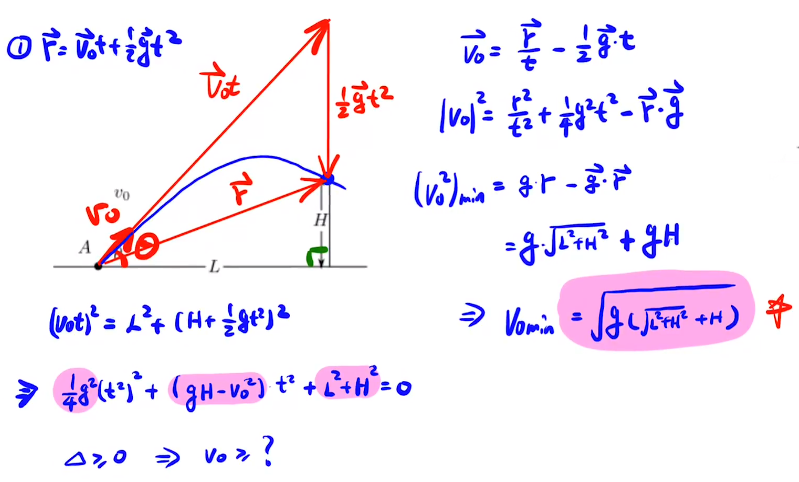 ① r⃗ = v⃗₀t + ½g⃗t²
v⃗₀t
½g⃗t²
v₀
v₀
r⃗
θ
A
H
L
(v₀t)² = L² + (H + ½gt²)²
⇒ ¼g²(t²)² + (gH − v₀²)·t² + L² + H² = 0
Δ ≥ 0 ⇒ v₀ ≥ ?
v⃗₀ = r⃗/t − ½g⃗·t
|v₀|² = r²/t² + ¼g²t² − r⃗·g⃗
(v₀²)min = g·r − g⃗·r⃗
= g·√(L²+H²) + gH
⇒ v₀min = √(g(√(L²+H²) + H))